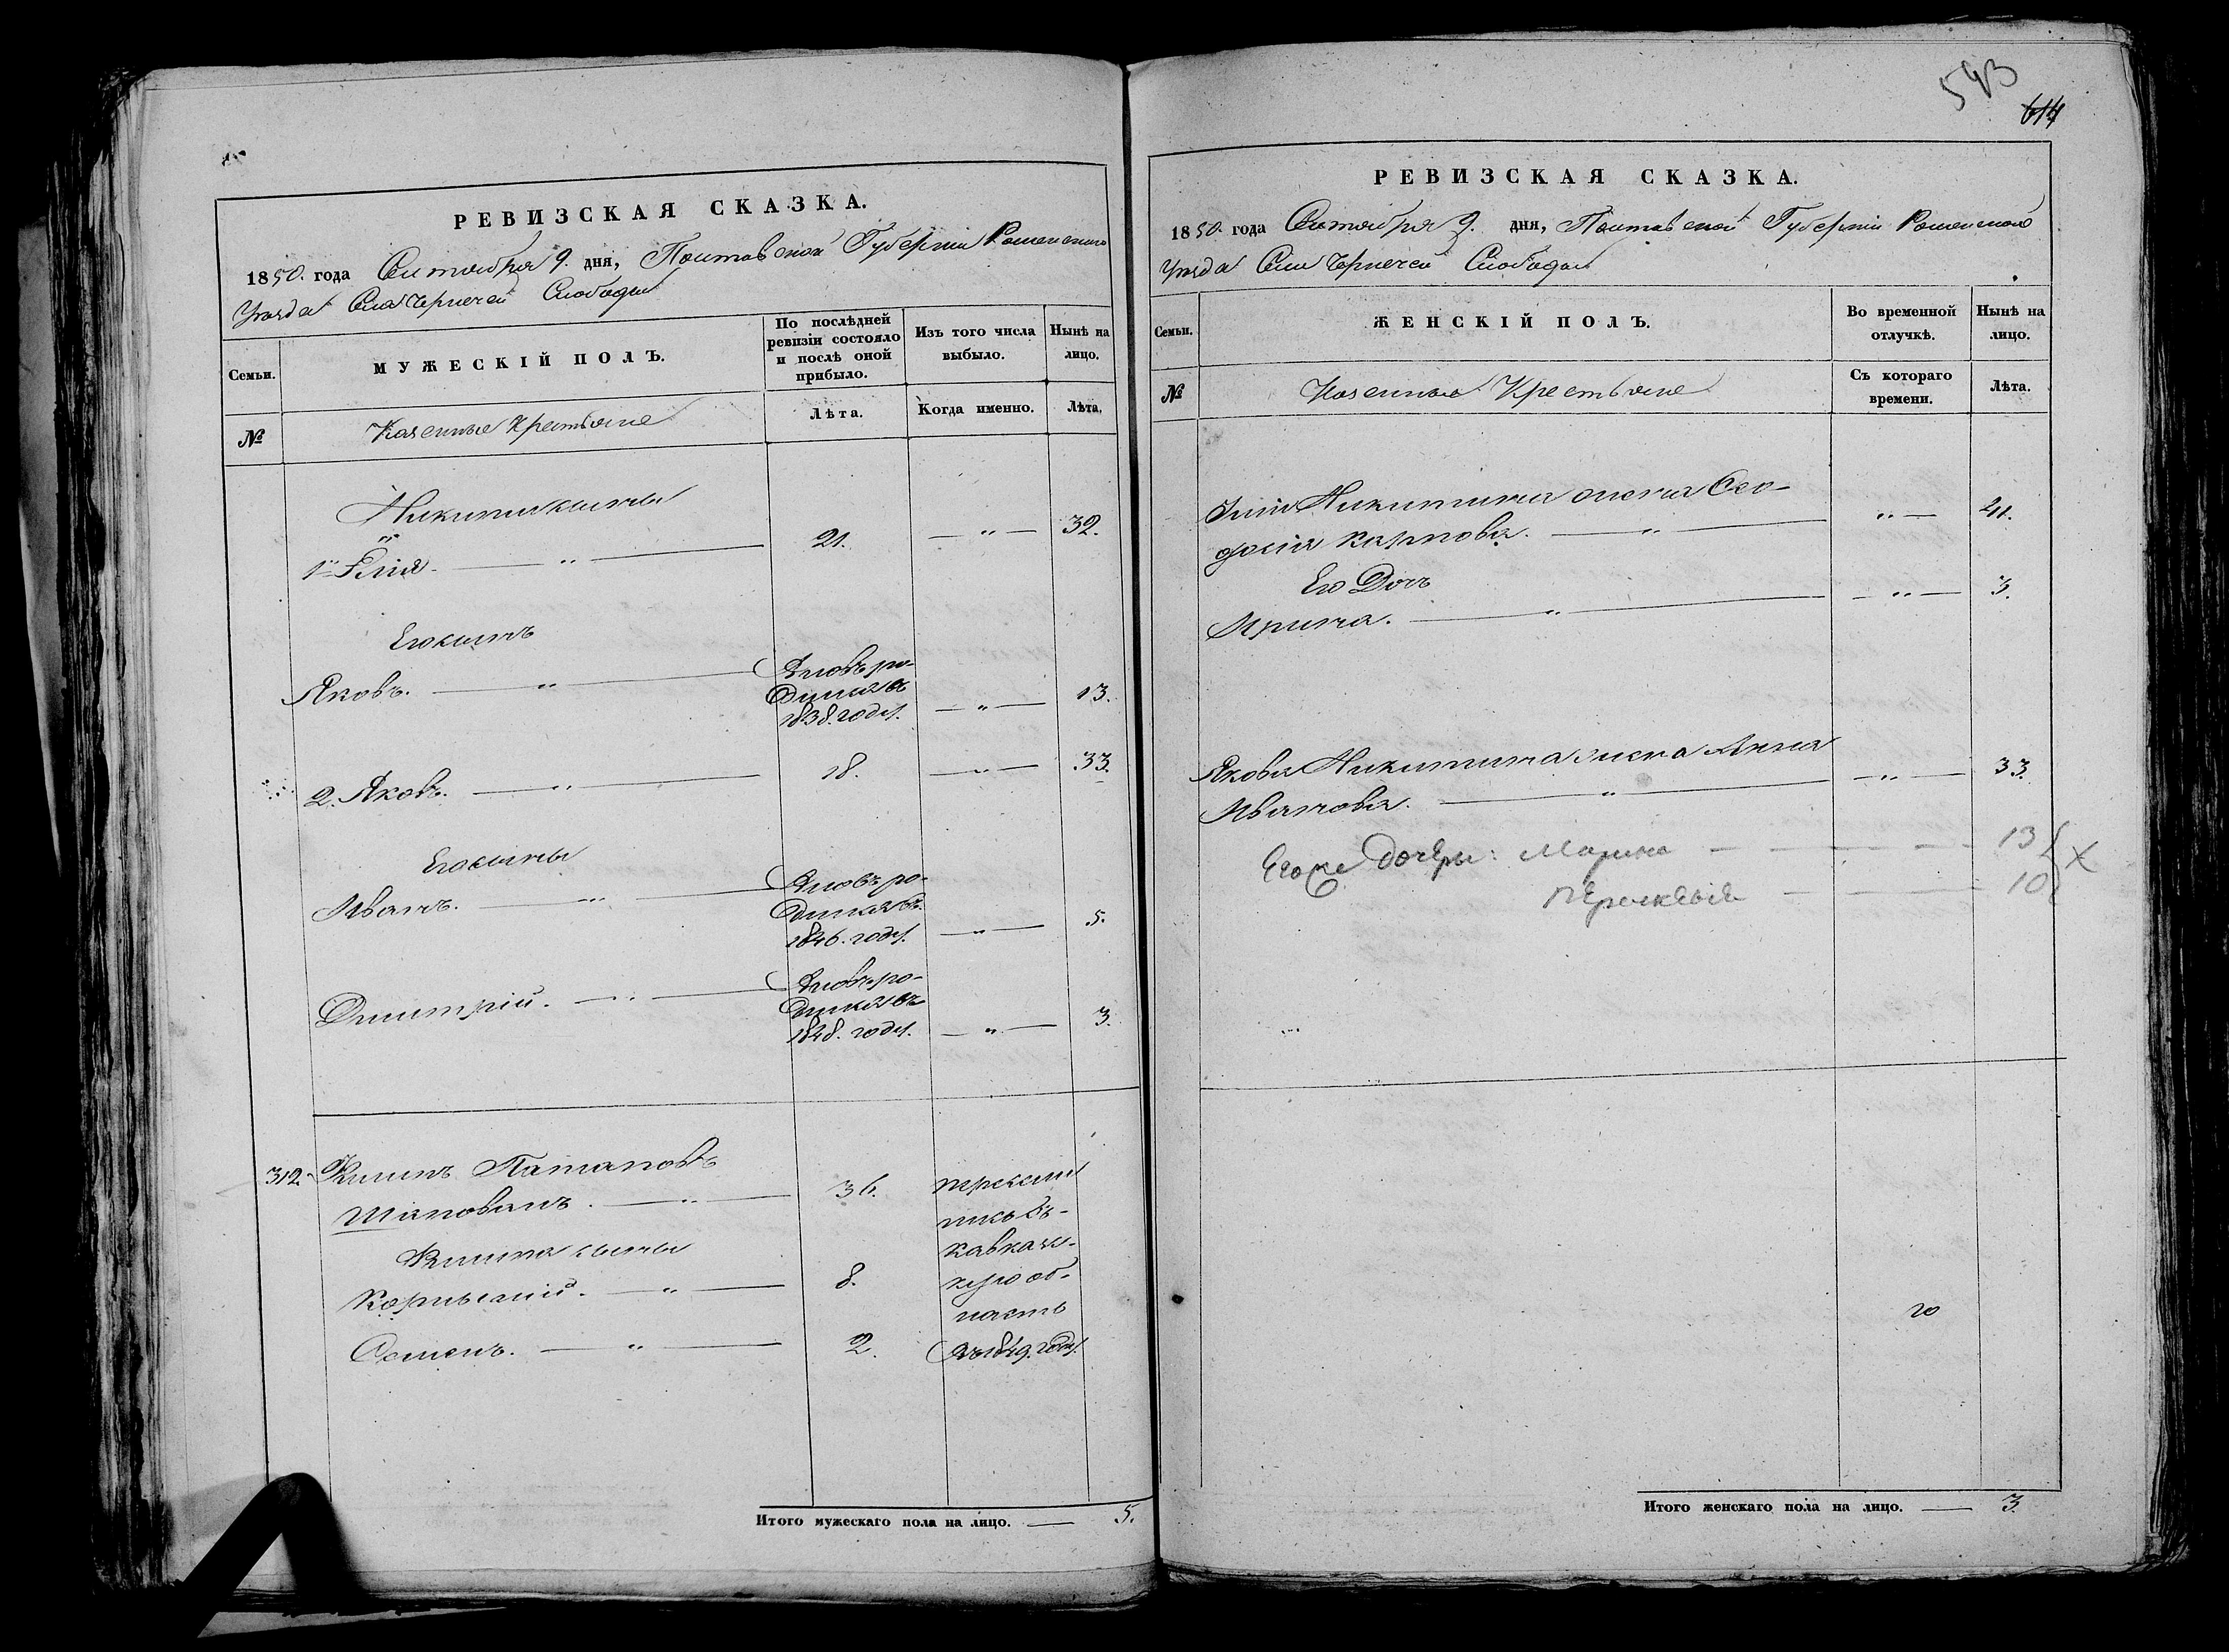 РЕВИЗСКАЯ СКАЗКА.
1850. года Октября 9. дня, Полтавской Губерніи Роменскаго
Уезда Села Чернечей Слободы
Семьи.
МУЖЕСКІЙ ПОЛЪ.
По послѣдней ревизіи состояло и послѣ оной прибыло.
Изъ того числа выбыло.
Нынѣ на лицо.
№
Казенные Крестьяне
Лѣта.
Когда именно.
Лѣта.
Никиты сыны
1й Илія. — " — 21. — " — 32.
Его сынъ
Яковъ. — " — Вновь ро-
дился въ
1838. году. — " — 13.
2. Яковъ. — " — 18. — " — 33.
Его сыны
Иванъ. — " — Вновь ро-
дился въ
1846. году. — " — 5.
Дмитрій. — " — Вновь ро-
дился въ
1848. году. — " — 3.
312. Филипъ Патаповъ
Шаповалъ. — " — 36. пересели
лись въ
Филипа сыны кавказс-
Корнылий. — " — 8. кую об-
ласть
Семенъ. — " — 2. въ 1849. году.
Итого мужескаго пола на лицо. — 5.
543
614
РЕВИЗСКАЯ СКАЗКА.
1850. года Октября 9. дня, Полтавской Губерніи Роменскаго
Уезда Села Чернечей Слободы
Семьи.
ЖЕНСКІЙ ПОЛЪ.
Во временной отлучкѣ.
Нынѣ на лицо.
№
Казенные Крестьяне
Съ котораго времени.
Лѣта.
Иліи Никитина жена Фео-
досія Карпова. — " — " — 41.
Его Дочь
Ирина. — " — " — 3.
Якова Никитина жена Анна
Иванова. — " — " — 33.
Его же дочери: Марина — 13
Пераскевія — 10 х
20
Итого женскаго пола на лицо. — 3.